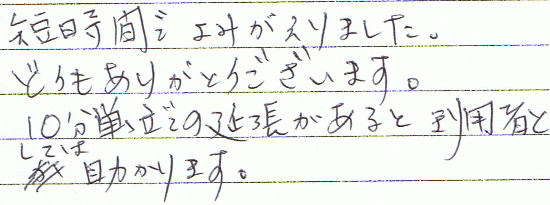 短時間でよみがえりました。
どうもありがとうございます。
10分単位での延長があると利用者と
しては
助かります。